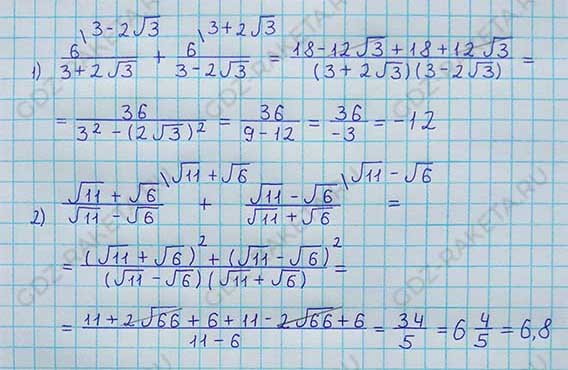 1) 6\3-2√3 / 3+2√3 + 6\3+2√3 / 3-2√3 = 18-12√3+18+12√3 / (3+2√3)(3-2√3) =
= 36 / 3²-(2√3)² = 36 / 9-12 = 36 / -3 = -12
2) √11+√6\√11+√6 / √11-√6 + √11-√6\√11-√6 / √11+√6 =
= (√11+√6)²+(√11-√6)² / (√11-√6)(√11+√6) =
= 11+2√66+6+11-2√66+6 / 11-6 = 34 / 5 = 6 4/5 = 6,8
GDZ-RAKETA.RU